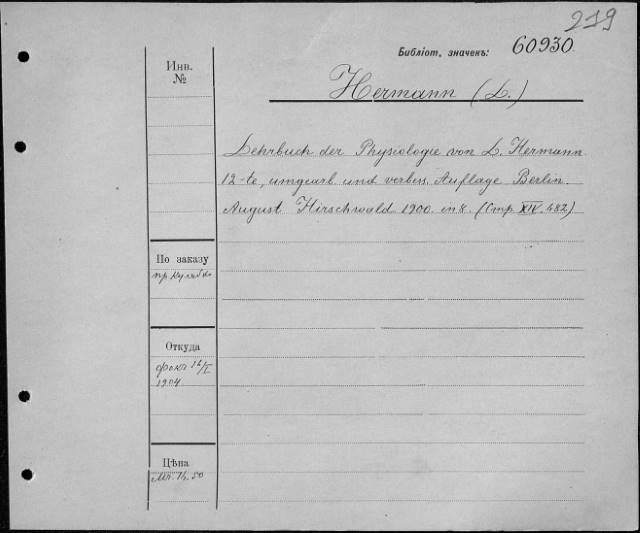 219
Библіот, значекъ: 60930
Инв.
№
Hermann (L.)
Lehrbuch der Physiologie von L. Hermann
12-te, umgearb und verbess. Auflage Berlin.
August Hirschwald 1900. in 8. (Стр. XIV. 682)
По заказу
пр. Кулябко
Откуда
1904
Цѣна